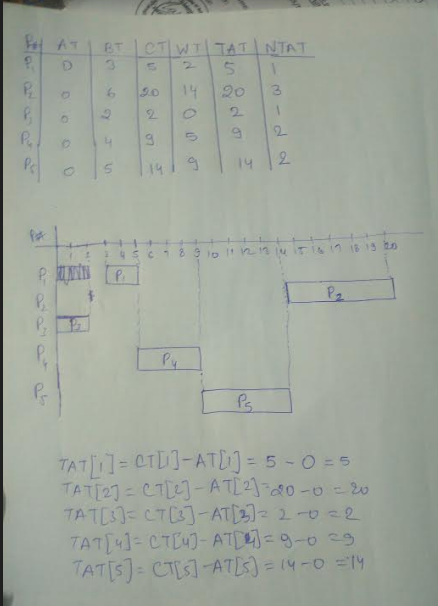 P# AT BT CT WT TAT NTAT
P1 0 3 5 2 5 1
P2 0 6 20 14 20 3
P3 0 2 2 0 2 1
P4 0 4 9 5 9 2
P5 0 5 14 9 14 2
P#
1 2 3 4 5 6 7 8 9 10 11 12 13 14 15 16 17 18 19 20
P1 P1
P2 P2
P3 P3
P4 P4
P5 P5
TAT[1] = CT[1] - AT[1] = 5 - 0 = 5
TAT[2] = CT[2] - AT[2] = 20 - 0 = 20
TAT[3] = CT[3] - AT[3] = 2 - 0 = 2
TAT[4] = CT[4] - AT[4] = 9 - 0 = 9
TAT[5] = CT[5] - AT[5] = 14 - 0 = 14